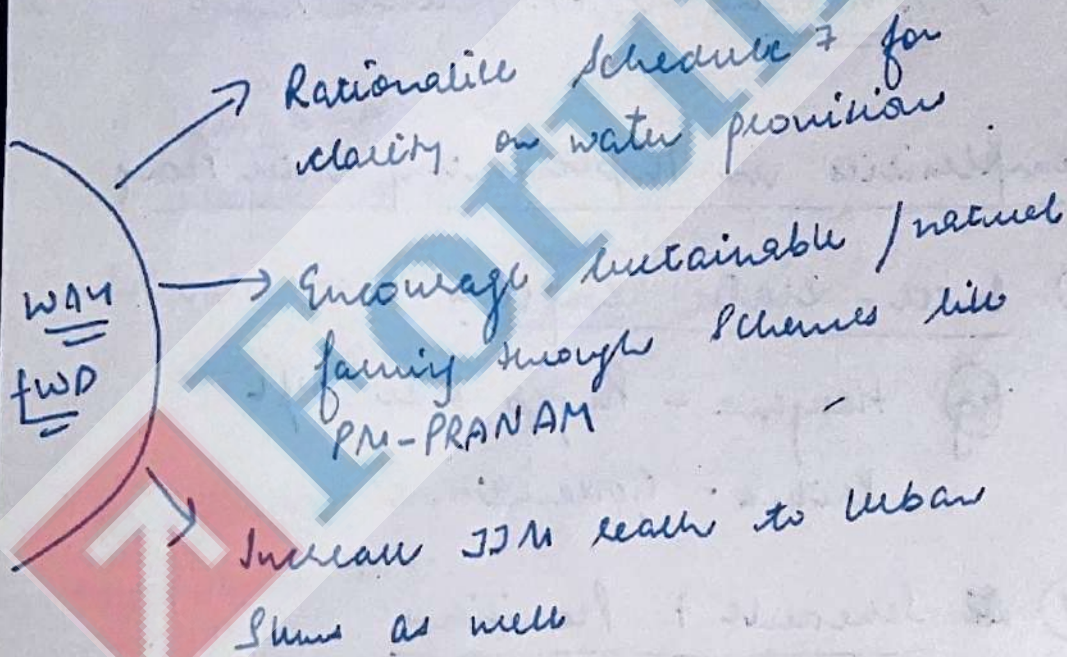 Rationalise Schedule 7 for
clarity on water provision
WAY
FWD
Encourage sustainable / natural
farming through Schemes like
PM-PRANAM
Increase JJM reach to Urban
Slums as well
Forum